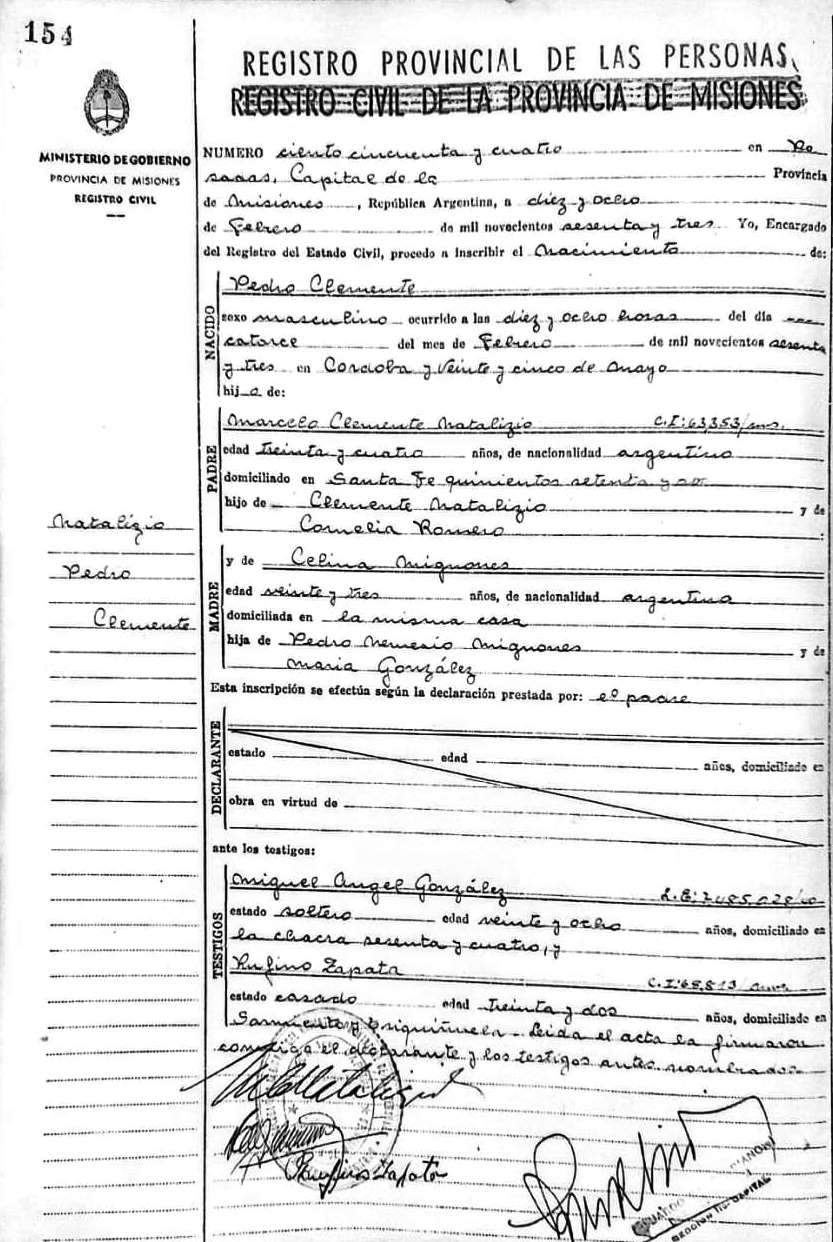 154
REGISTRO PROVINCIAL DE LAS PERSONAS
REGISTRO CIVIL DE LA PROVINCIA DE MISIONES
MINISTERIO DE GOBIERNO
PROVINCIA DE MISIONES
REGISTRO CIVIL
NUMERO ciento cincuenta y cuatro en Po
sadas, Capital de la Provincia
de Misiones, República Argentina, a diez y ocho
de Febrero de mil novecientos sesenta y tres Yo, Encargado
del Registro del Estado Civil, procedo a inscribir el Nacimiento de:
NACIDO
Pedro Clemente
sexo masculino ocurrido a las diez y ocho horas del día
catorce del mes de Febrero de mil novecientos sesenta
y tres en Cordoba y Veinte y cinco de Mayo
hij o de:
PADRE
Marcelo Clemente Natalizio C.I: 63,353/ms.
edad treinta y cuatro años, de nacionalidad argentino
domiciliado en Santa Fe quinientos setenta y
hijo de Clemente Natalizio y de
Cornelia Romero :
Natalizio
Pedro
Clemente
MADRE
y de Celina Mignones
edad veinte y tres años, de nacionalidad argentina
domiciliada en la misma casa
hija de Pedro Nemesio Mignones y de
Maria González
Esta inscripción se efectúa según la declaración prestada por: el padre
DECLARANTE
estado edad años, domiciliado en
obra en virtud de
ante los testigos:
TESTIGOS
Miguel Angel González
estado soltero edad veinte y ocho años, domiciliado en
la chacra sesenta y cuatro, y
Rufino Zapata C.I: 68,813
estado casado edad treinta y dos años, domiciliado en
Sarmiento y Leida el acta la firmaron
conmigo el declarante y los testigos antes nombrados
Rufino Zapata